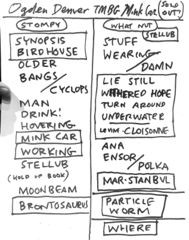 Ogden Denver TMBG/Mink Car SOLD OUT!
STOMPY
SYNOPSIS
BIRDHOUSE
OLDER
BANGS/
CYCLOPS
MAN
DRINK!
HOVERING
MINK CAR
WORKING
STELLUB
(HOLD UP BOOK)
MOONBEAM
BRONTOSAURUS
WHAT NUT
STELLUB
STUFF
WEARING/
DAMN
LIE STILL
WITHERED HOPE
TURN AROUND
UNDERWATER
CLOISONNE
ANA
ENSOR/
POLKA
MAR·STANBUL
PARTICLE
WORM
WHERE